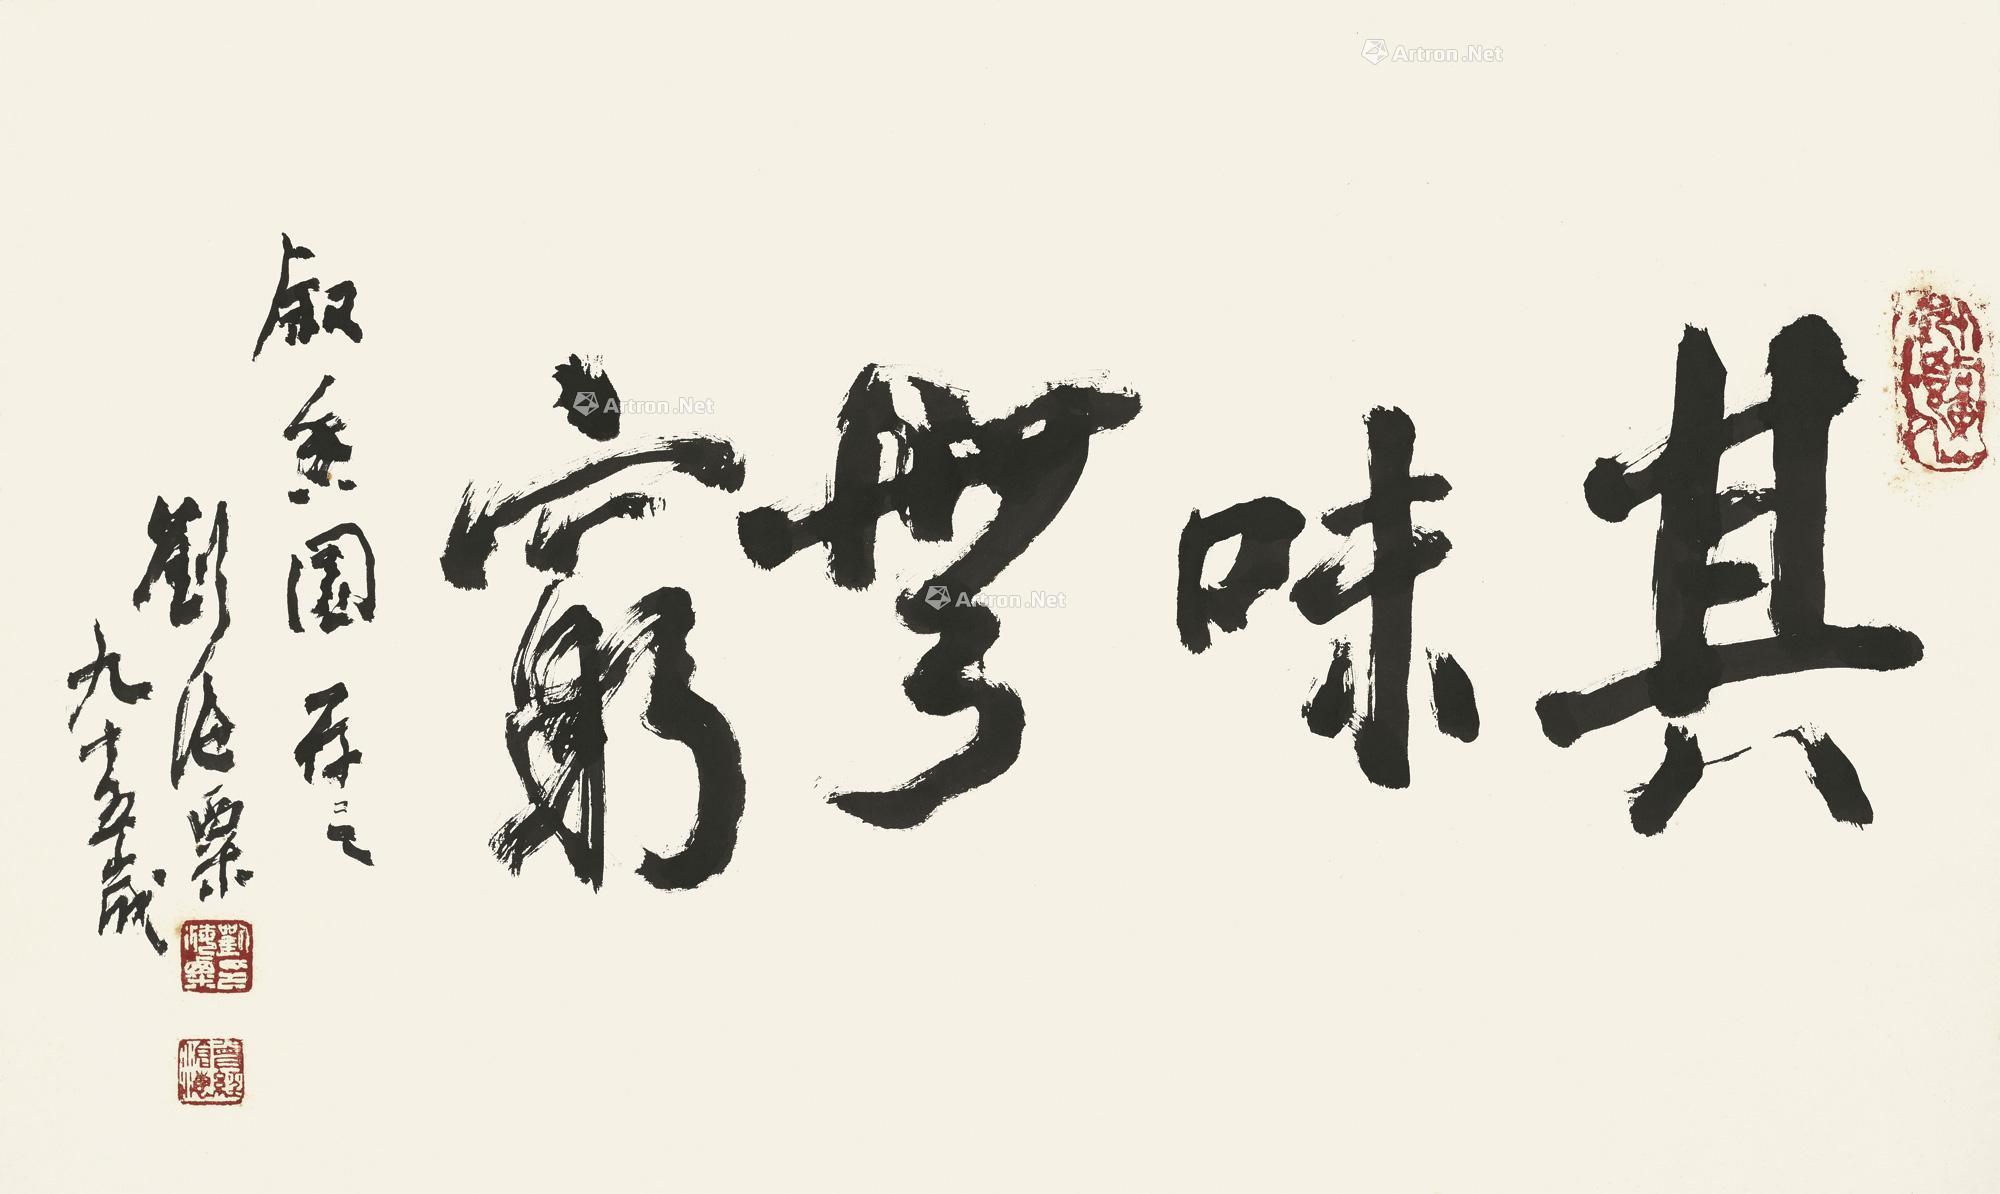 其味無窮
叙香園存之
劉海粟
九十五歲
劉海粟印
曾經滄海
Artron.Net
Artron.Net
Artron.Net